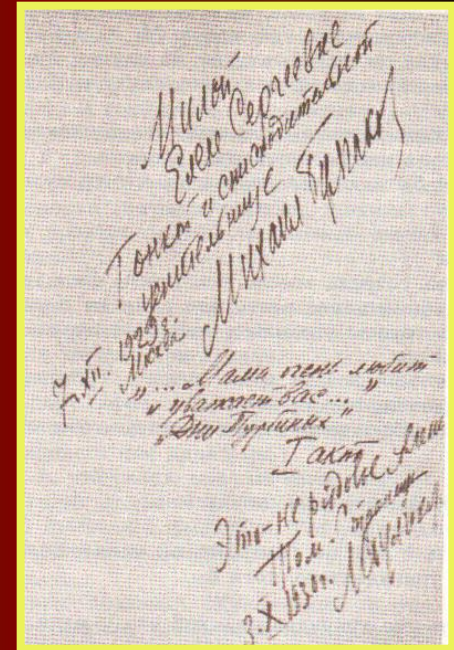 Милой
Елене Сергеевне
Тонкой и снисходительной
ценительнице
Михаил Булгаков
7.XII. 1929 г.
Москва
"... Мама очень любит
и уважает вас..."
"Дни Турбиных"
I акт
Это - не
3.X 1930г. М. Булгаков